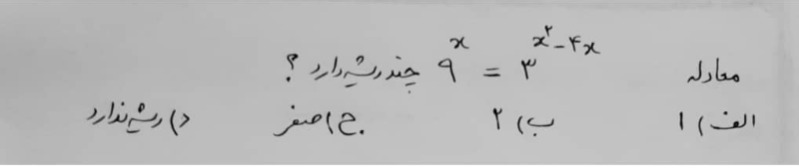 معادله ۹^x = ۳^(x^۲-۴x) چند ریشه دارد ؟
الف) ۱ ب) ۲ ج) صفر د) ریشه ندارد